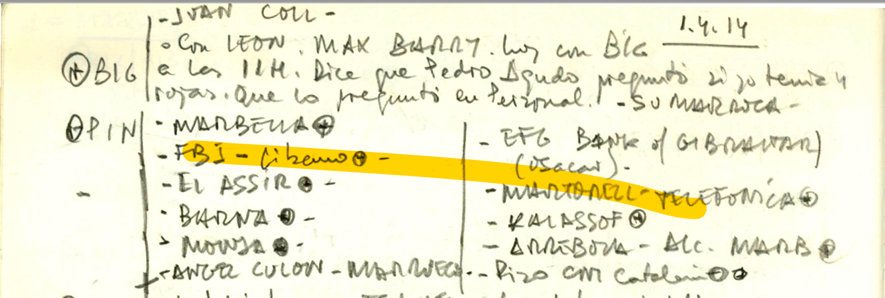 - JUAN COLL -
1.4.14
o Con LEON. MAX BARRY. hoy con BIG
+ BIG a las 11H. Dice que Pedro Agudo preguntó si yo tenia
rojas. Que lo preguntó en Personal. - SU MARRUECA -
PIN - MARBELLA +
- FBI - Líbano -
- EL ASSIR -
- BARNA -
- MONSA -
- ANGEL COLON - MARRUECOS -
- EFG BANK of GIBRALTAR)
(Usacar) -
- MARTORELL - TELEFONICA
- KALASSOF
- ARREBOLA - ALC. MARB
- Piso con Catalán